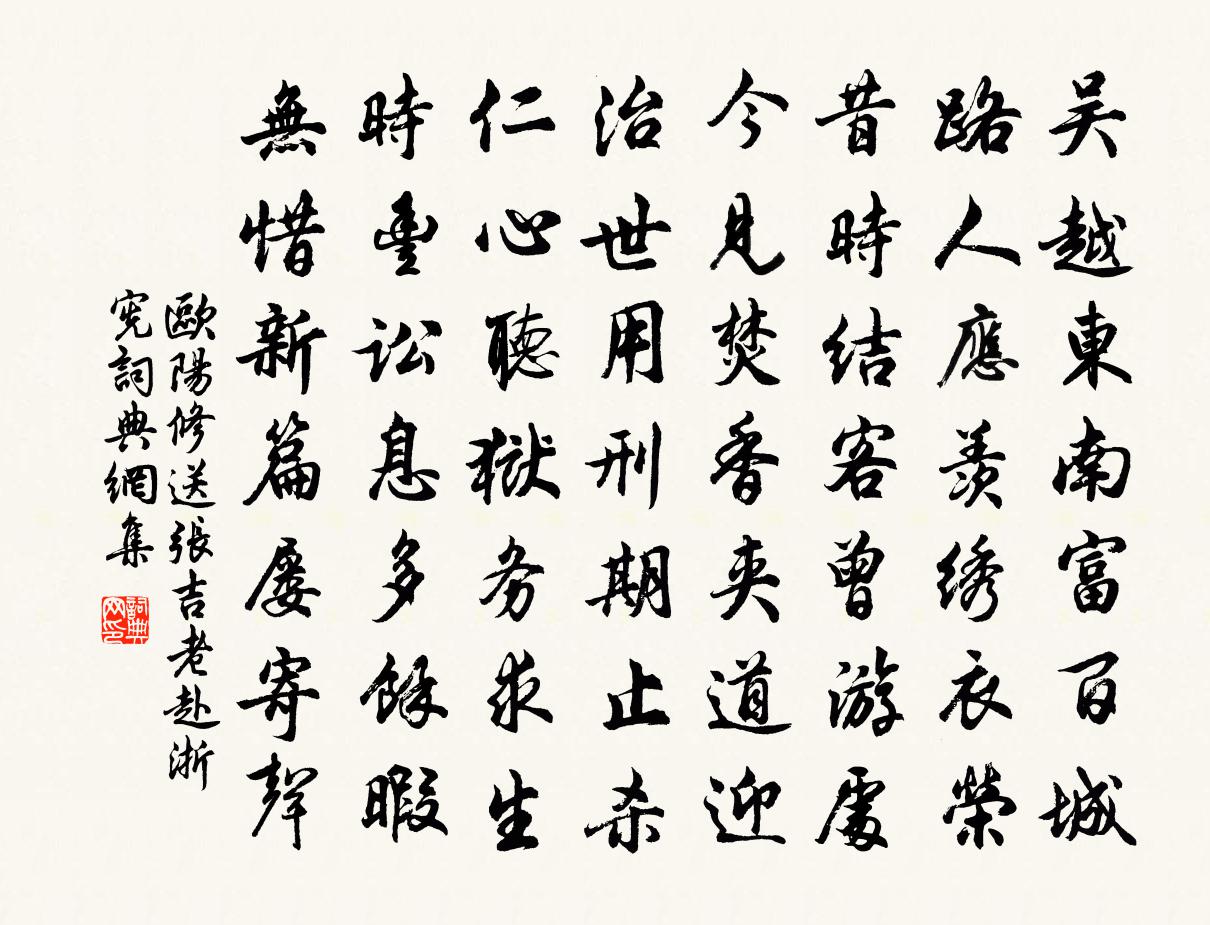 吴越東南富百城
路人應羨绣衣榮
昔時結客曾游處
今見焚香夾道迎
治世用刑期止杀
仁心聽獄务求生
時豊訟息多餘暇
無惜新篇屡寄聲
歐陽修送張吉老赴浙
宪詞典網集
詞典网印